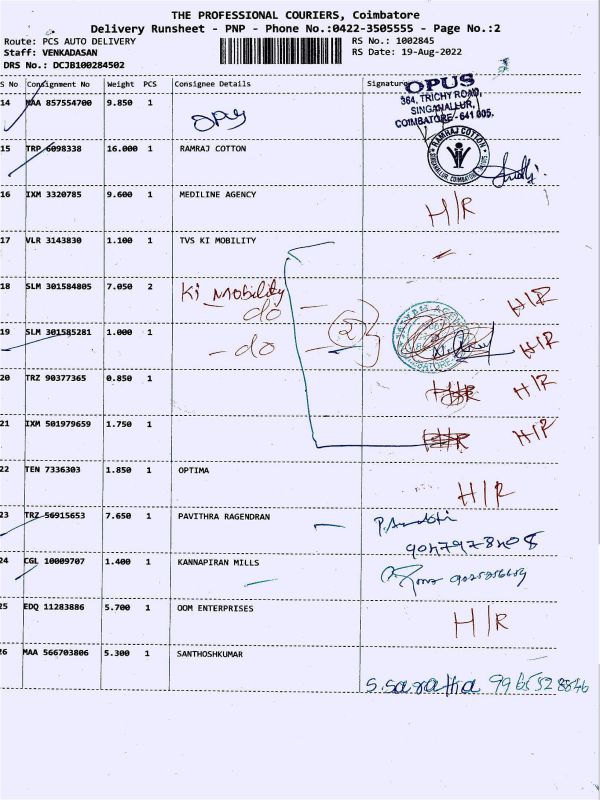 THE PROFESSIONAL COURIERS, Coimbatore
Delivery Runsheet - PNP - Phone No.:0422-3505555 - Page No.:2
Route: PCS AUTO DELIVERY RS No.: 1002845
Staff: VENKADASAN RS Date: 19-Aug-2022
DRS No.: DCJB100284502
S No Consignment No Weight PCS Consignee Details Signature
14 MAA 857554700 9.850 1 OPUS
OPUS
364, TRICHY ROAD,
SINGANALLUR,
COIMBATORE - 641 005.
15 TRP 6098338 16.000 1 RAMRAJ COTTON
RAMRAJ COTTON
16 IXM 3320785 9.600 1 MEDILINE AGENCY H/R
17 VLR 3143830 1.100 1 TVS KI MOBILITY
18 SLM 301584805 7.050 2 Ki Mobility H/R
- do -
19 SLM 301585281 1.000 1 - do - 2 H/R
20 TRZ 90377365 0.850 1 H/R H/R
21 IXM 501979659 1.750 1 H/R H/R
22 TEN 7336303 1.850 1 OPTIMA H/R
23 TRZ 56915653 7.650 1 PAVITHRA RAGENDRAN
24 CGL 10009707 1.400 1 KANNAPIRAN MILLS
25 EDQ 11283886 5.700 1 OOM ENTERPRISES H/R
26 MAA 566703806 5.300 1 SANTHOSHKUMAR
S. Saratha 9965528846